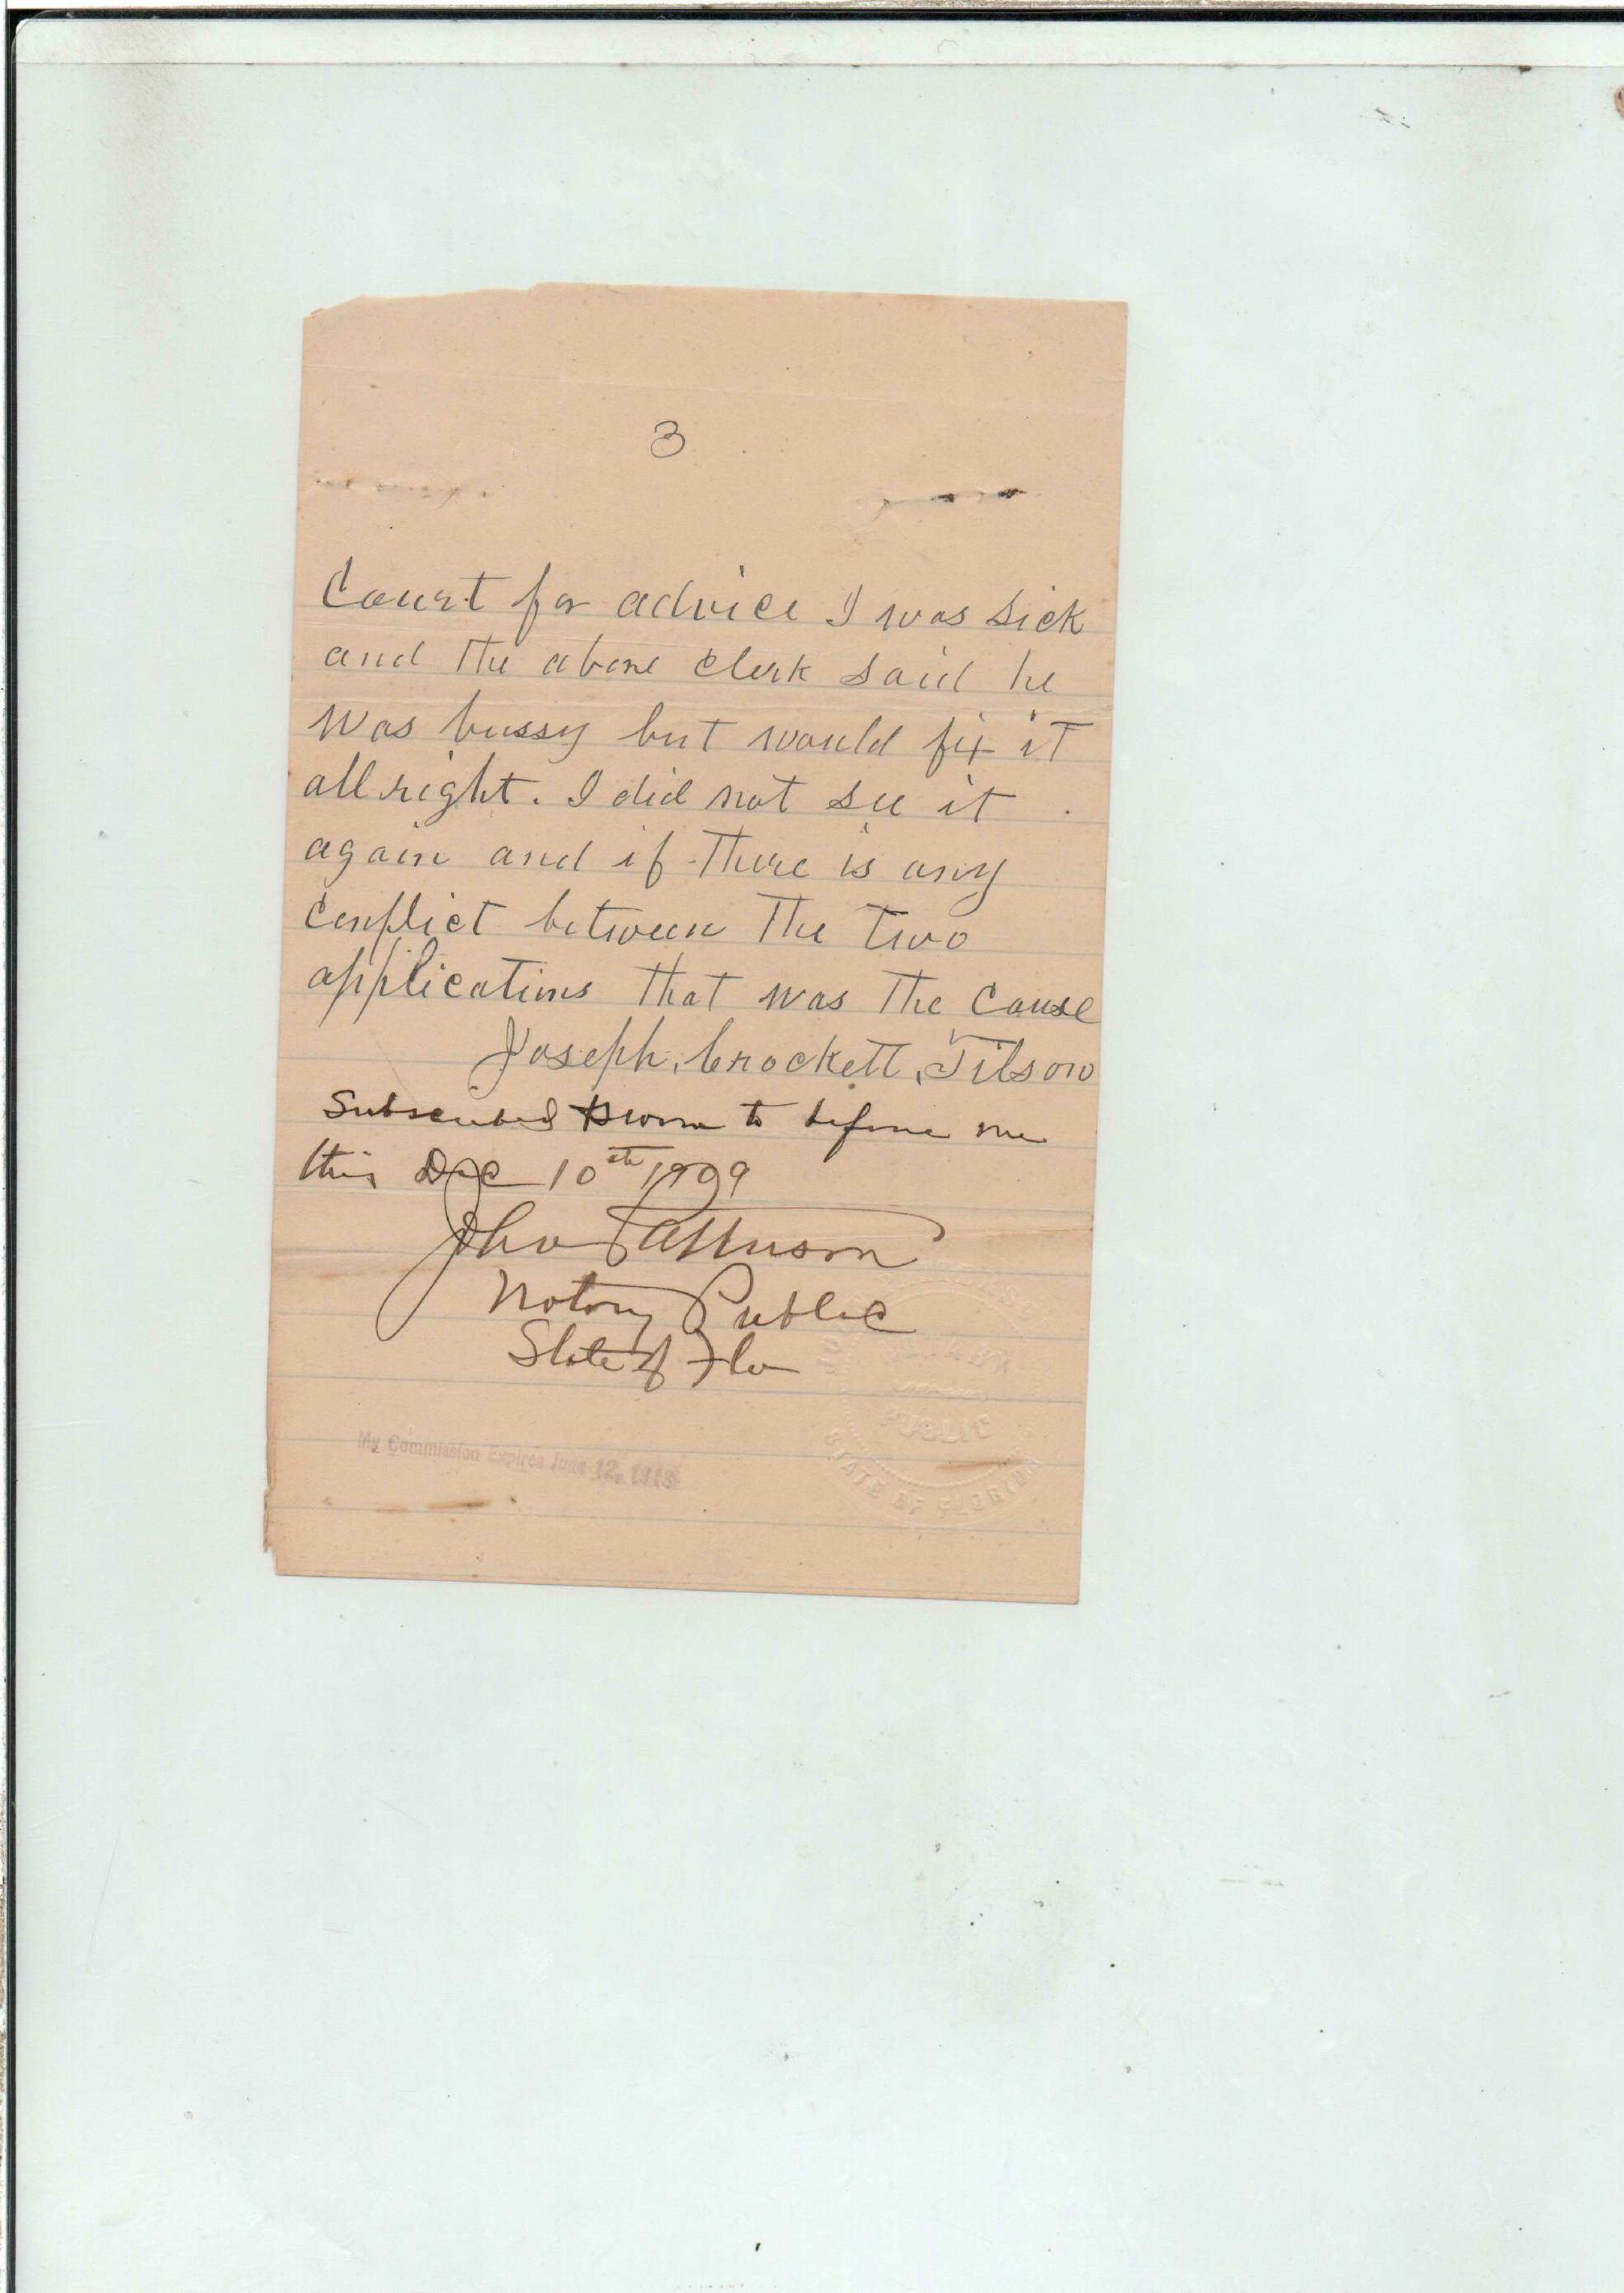 3
Court for advice I was sick
and the above Clerk said he
was bussy but would fix it
all right. I did not see it
again and if there is any
Conflict between The Two
applications that was The Cause
Joseph. Crockett. Tilson
Subscribed & sworn to before me
this Dec 10th 1909
John Patterson
Notary Public
State of Fla
My Commission Expires June 12, 1913
NOTARY
PUBLIC
STATE OF FLORIDA